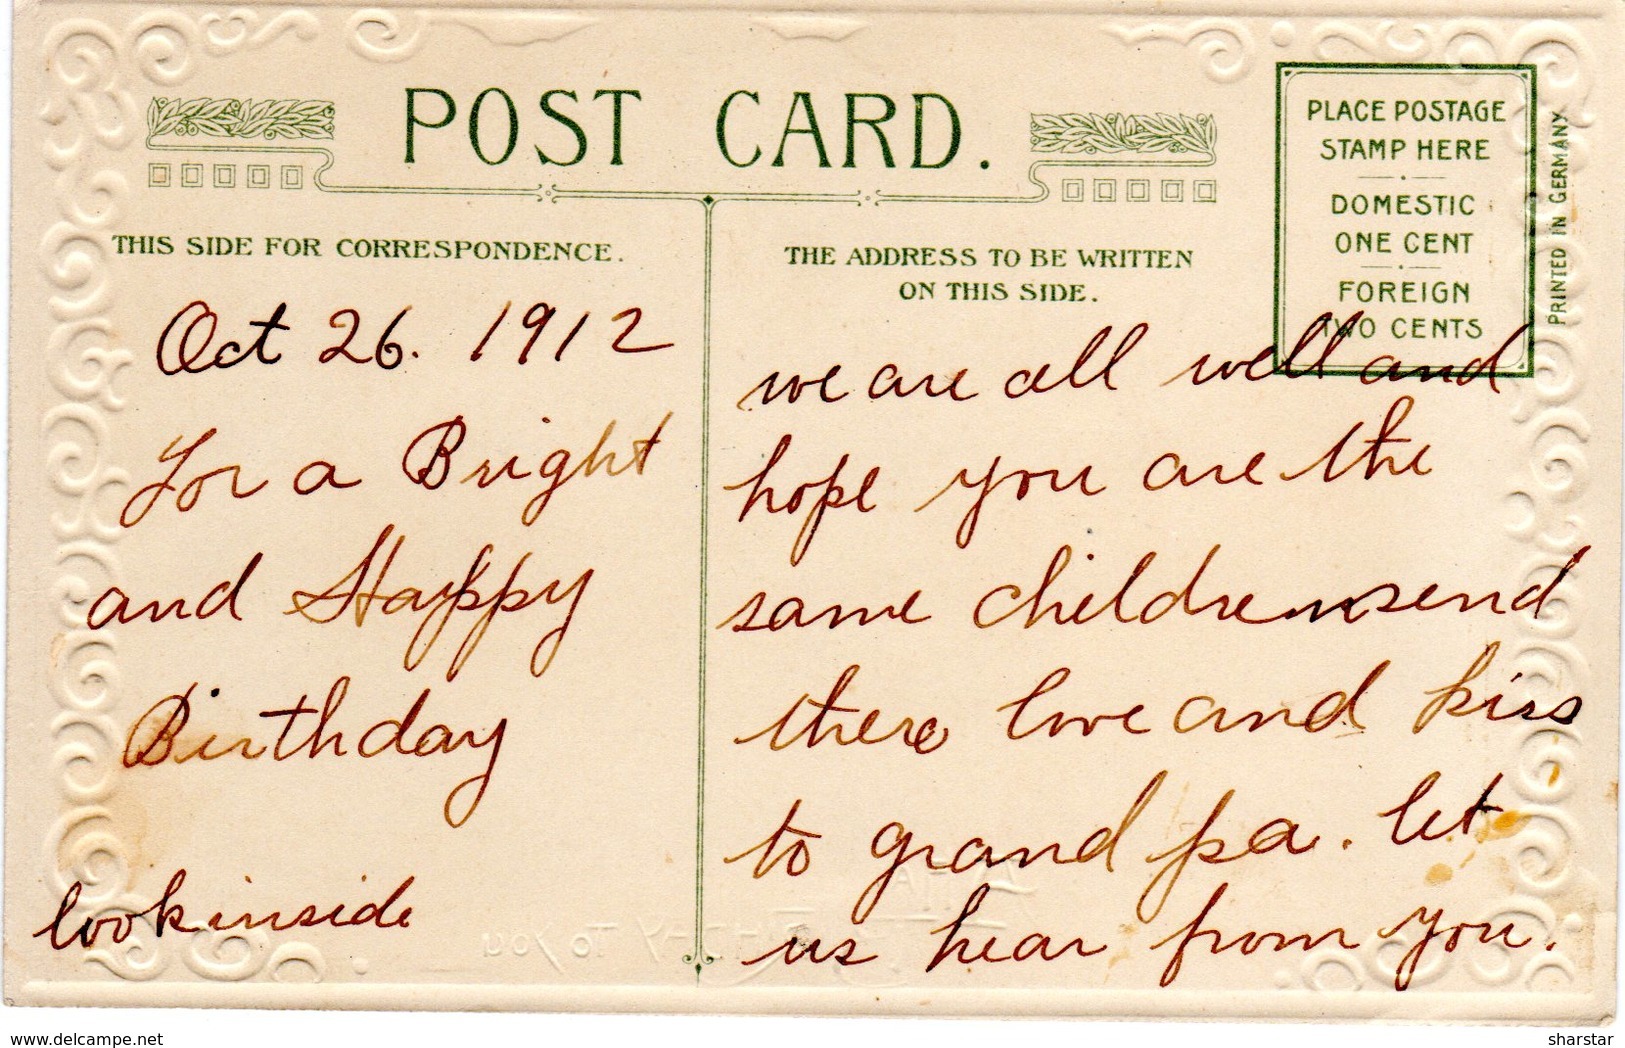 POST CARD.
THIS SIDE FOR CORRESPONDENCE.
Oct 26. 1912
For a Bright
and Happy
Birthday
look inside
THE ADDRESS TO BE WRITTEN
ON THIS SIDE.
PLACE POSTAGE
STAMP HERE
DOMESTIC
ONE CENT
FOREIGN
TWO CENTS
PRINTED IN GERMANY
we are all well and
hope you are the
same children send
there love and kiss
to grand pa. let
us hear from you.
www.delcampe.net
sharstar